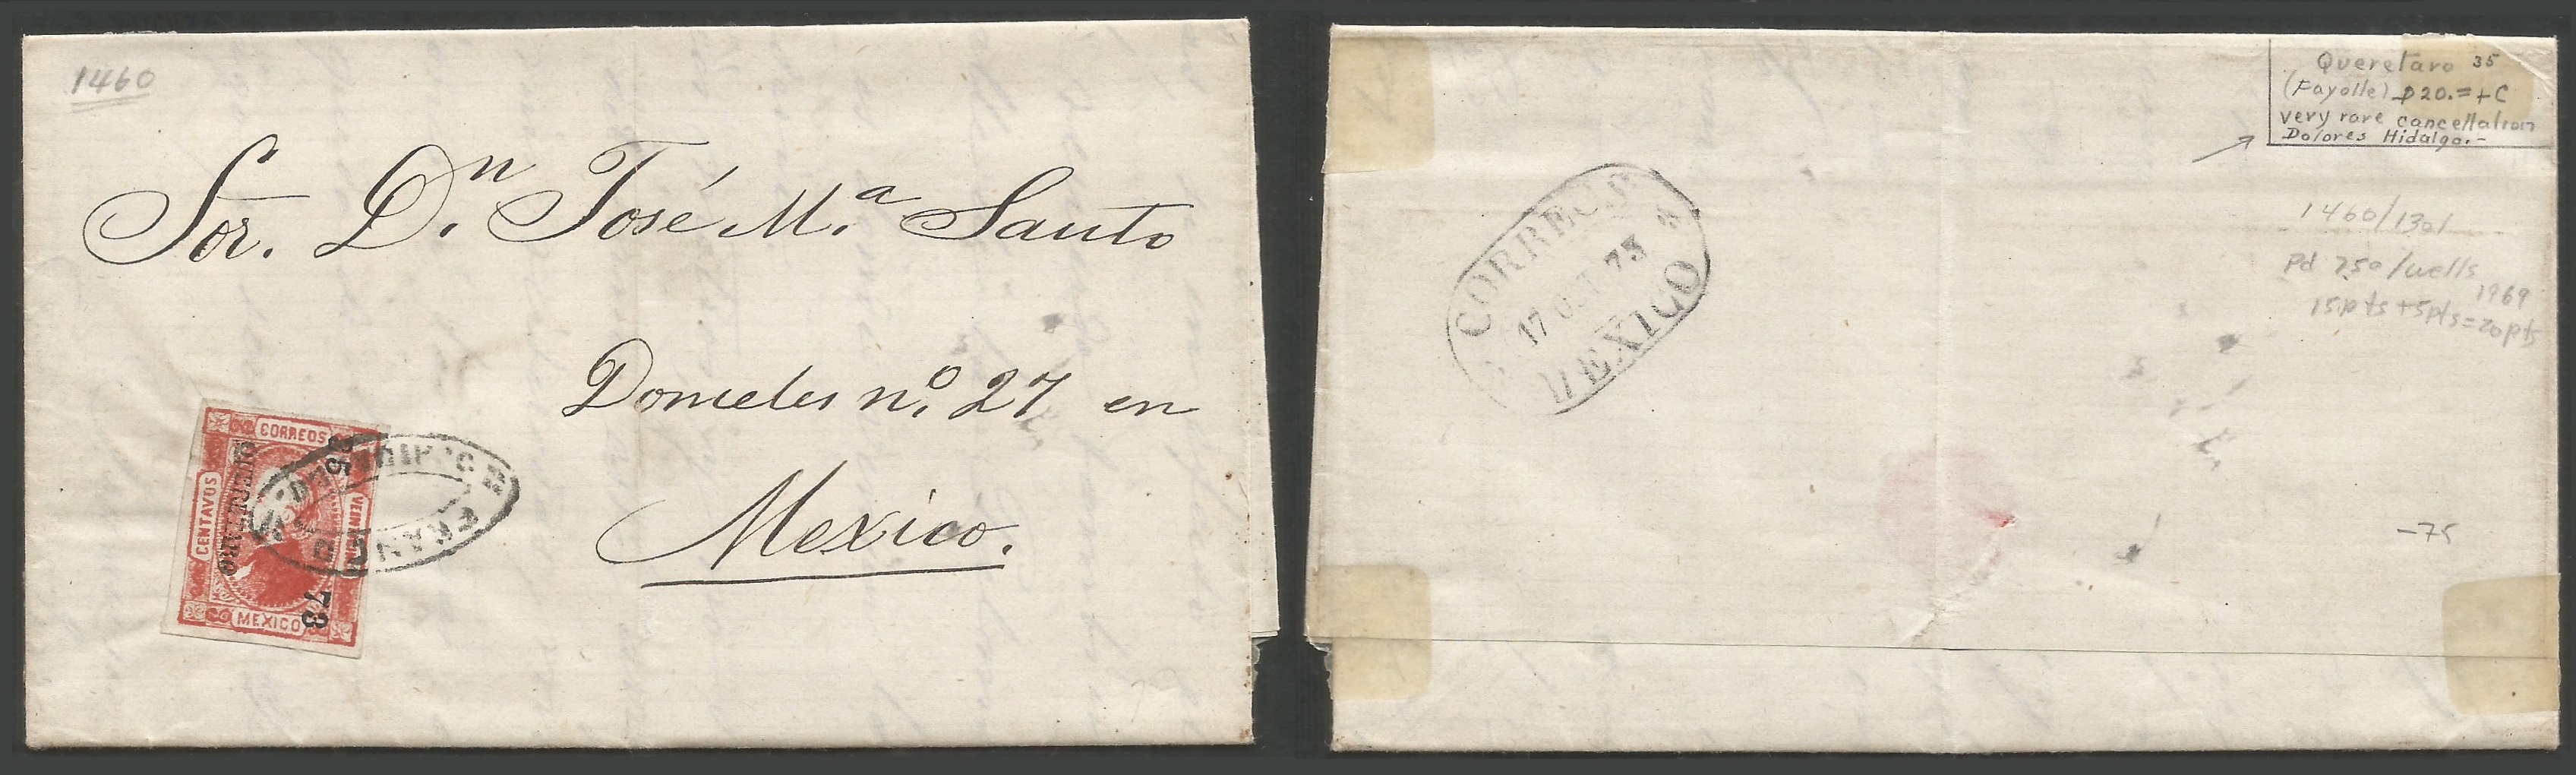 1460
Sor. Dn. José Ma. Santo
Donceles no. 27 en
Mexico.
CORREOS
CENTAVOS
QUERETARO
35
73
MEXICO
FRANCO
CORREOS
17 OCT 73
MEXICO
Queretaro 35
(Fayolle) p20.= + C
very rare cancellation
Dolores Hidalgo.-
1460/1301
Pd 750/wells
1969
15pts + 5pts = 20pts
-75